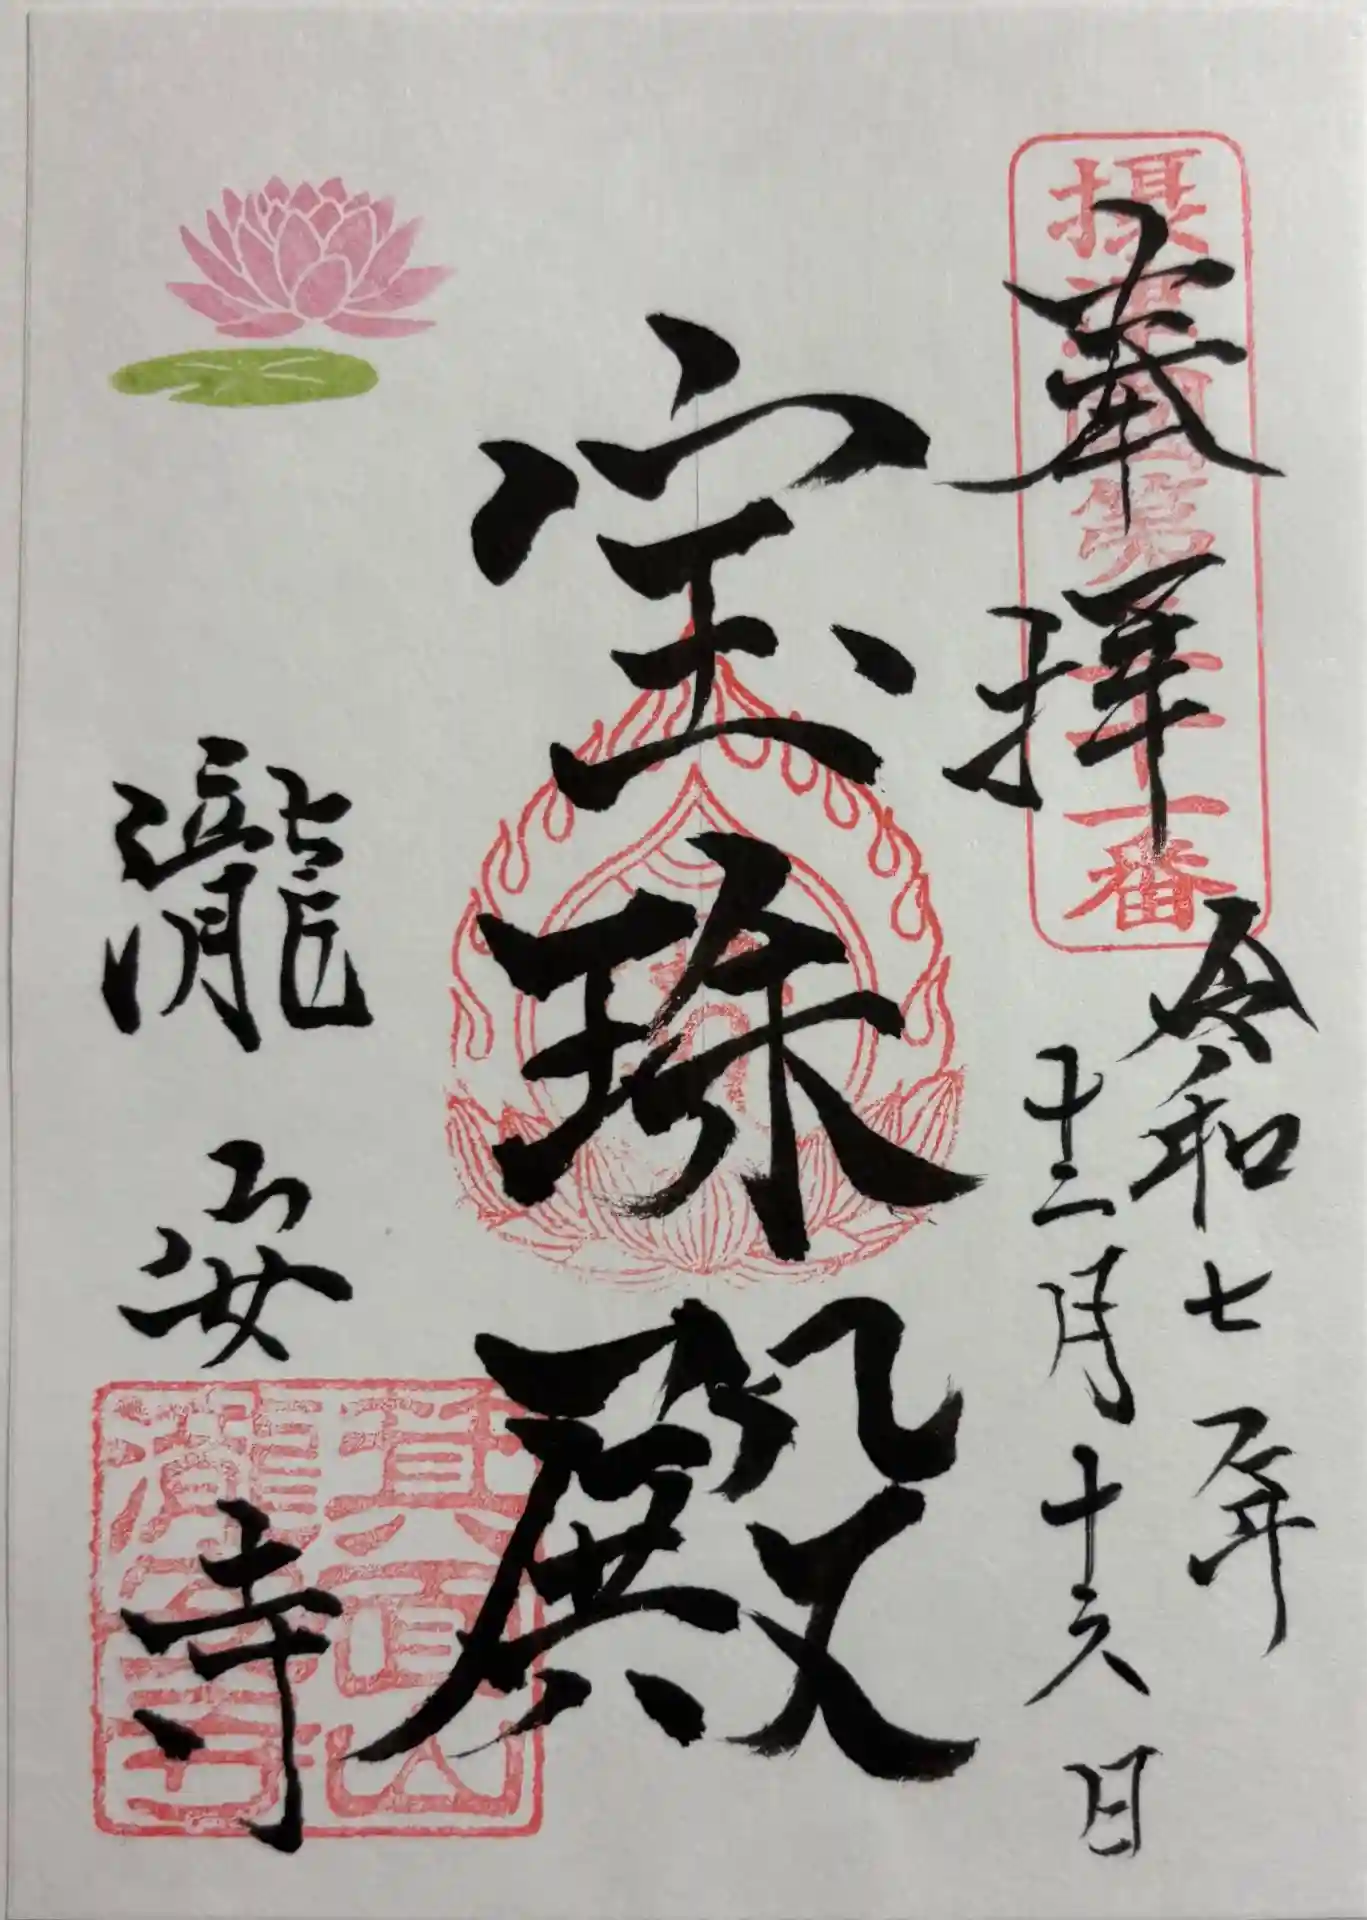 摂津国第十一番
奉拝
令和七年
十二月十六日
宝珠殿
瀧安寺
箕面山
瀧安寺